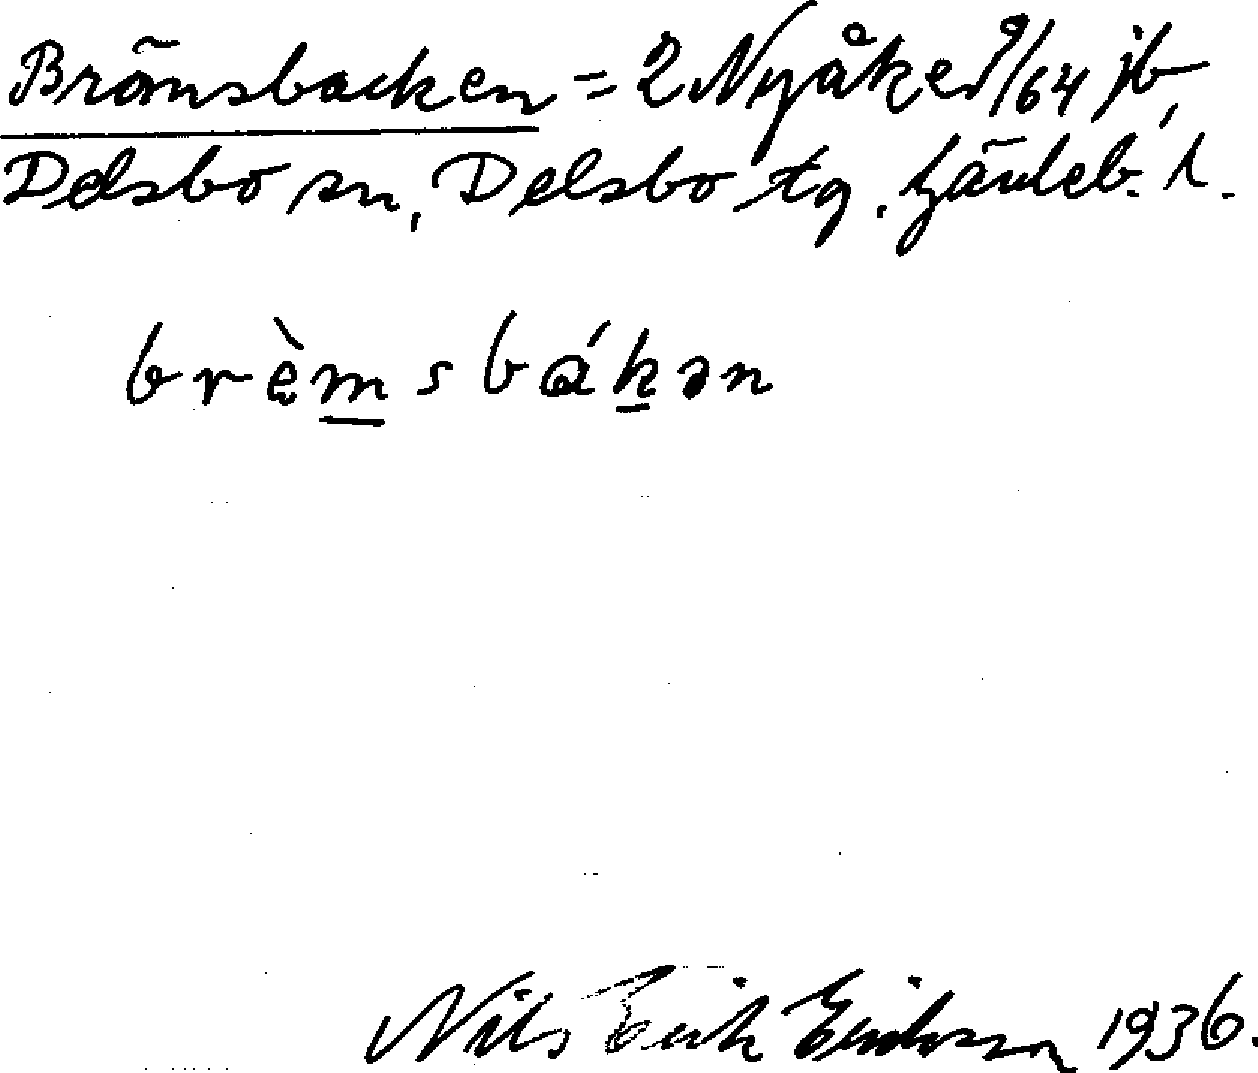 Brämsbacken = 2 Nyåker 9/64 jb,
Delsbo sn, Delsbo tg. Gävleb. l.
brèmsbákən
Nils Erik Eriksson 1936.